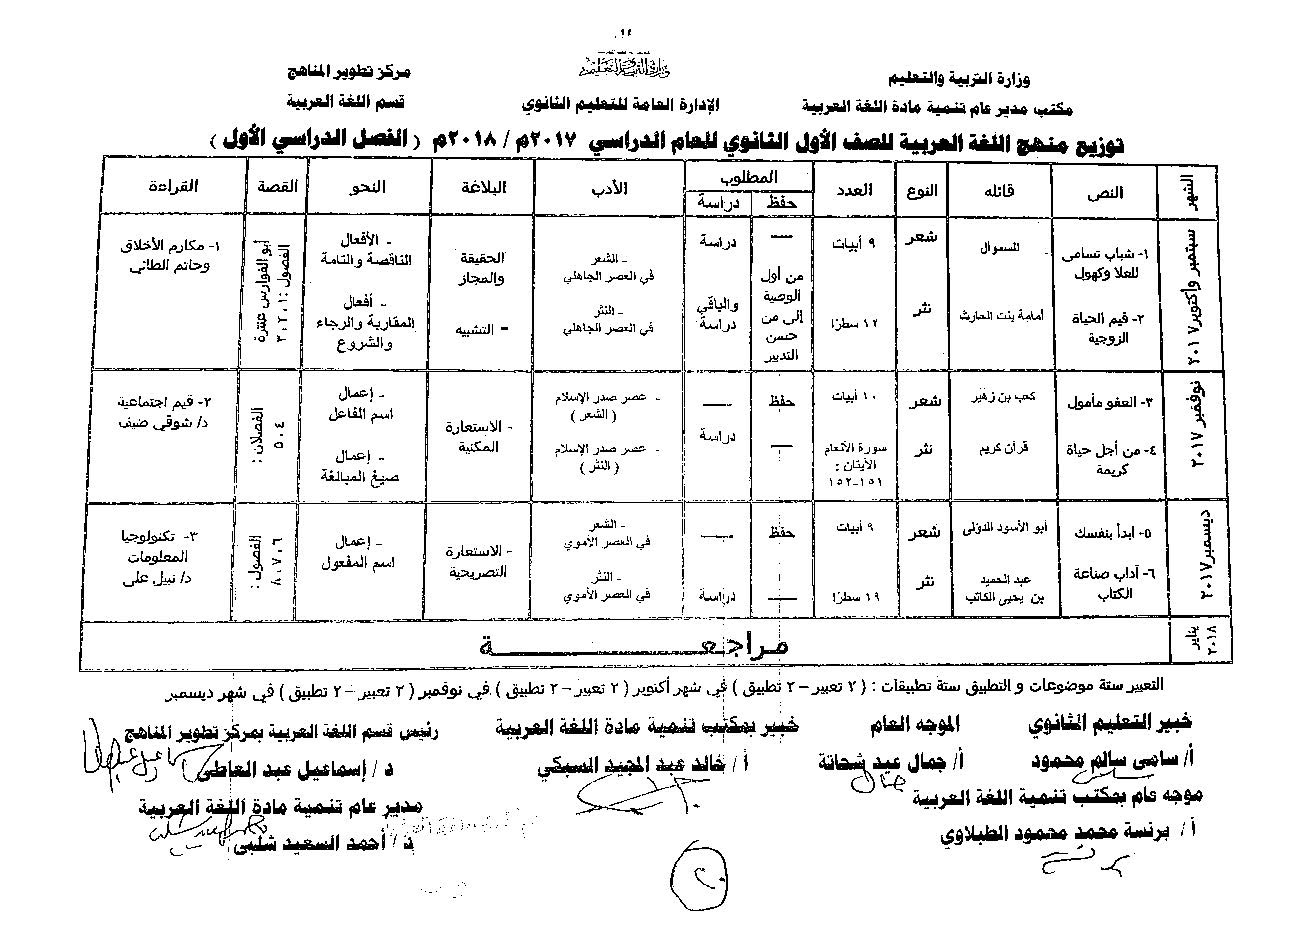 ١٤
وزارة التربية والتعليم
وزارة التربية والتعليم
مكتب مدير عام تنمية مادة اللغة العربية
الإدارة العامة للتعليم الثانوي
مركز تطوير المناهج
قسم اللغة العربية
توزيع منهج اللغة العربية للصف الأول الثانوي للعام الدراسي ٢٠١٧م / ٢٠١٨م ( الفصل الدراسي الأول )
الشهر
النص
قائله
النوع
العدد
المطلوب
حفظ
دراسة
الأدب
البلاغة
النحو
القصة
القراءة
سبتمبر وأكتوبر ٢٠١٧
١- شباب تسامى
للعلا وكهول
السموأل
شعر
٩ أبيات
—
دراسة
٢- قيم الحياة
الزوجية
أمامة بنت الحارث
نثر
١٢ سطرًا
من أول
الوصية
إلى من
حسن
التدبير
والباقي
دراسة
- الشعر
في العصر الجاهلي
- النثر
في العصر الجاهلي
الحقيقة
والمجاز
- التشبيه
- الأفعال
الناقصة والتامة
- أفعال
المقاربة والرجاء
والشروع
أبو الفوارس عنترة
الفصول : ١ ، ٢ ، ٣
١- مكارم الأخلاق
وحاتم الطائي
نوفمبر ٢٠١٧
٣- العفو مأمول
كعب بن زهير
شعر
١٠ أبيات
حفظ
—
٤- من أجل حياة
كريمة
قرآن كريم
نثر
سورة الأنعام
الآيتان :
١٥١-١٥٢
—
دراسة
- عصر صدر الإسلام
( الشعر )
- عصر صدر الإسلام
( النثر )
- الاستعارة
المكنية
- إعمال
اسم الفاعل
- إعمال
صيغ المبالغة
الفصلان :
٤ ، ٥
٢- قيم اجتماعية
د/ شوقي ضيف
ديسمبر ٢٠١٧
٥- ابدأ بنفسك
أبو الأسود الدؤلى
شعر
٩ أبيات
حفظ
—
٦- آداب صناعة
الكتاب
عبد الحميد
بن يحيى الكاتب
نثر
١٩ سطرًا
—
دراسة
- الشعر
في العصر الأموي
- النثر
في العصر الأموي
- الاستعارة
التصريحية
- إعمال
اسم المفعول
الفصول :
٦ ، ٧ ، ٨
٣- تكنولوجيا
المعلومات
د/ نبيل على
يناير ٢٠١٨
مراجعـــــــــة
التعبير ستة موضوعات و التطبيق ستة تطبيقات : ( ٢ تعبير – ٢ تطبيق ) في شهر أكتوبر ( ٢ تعبير – ٢ تطبيق ) في نوفمبر ( ٢ تعبير – ٢ تطبيق ) في شهر ديسمبر
خبير التعليم الثانوي
الموجه العام
خبير بمكتب تنمية مادة اللغة العربية
رئيس قسم اللغة العربية بمركز تطوير المناهج
أ/ سامى سالم محمود
أ/ جمال عيد شحاتة
أ/ خالد عبد المجيد السبكي
د/ إسماعيل عبد العاطي
موجه عام بمكتب تنمية اللغة العربية
مدير عام تنمية مادة اللغة العربية
أ/ برنسة محمد محمود الطبلاوي
د/ أحمد السعيد شلبى
٢٠